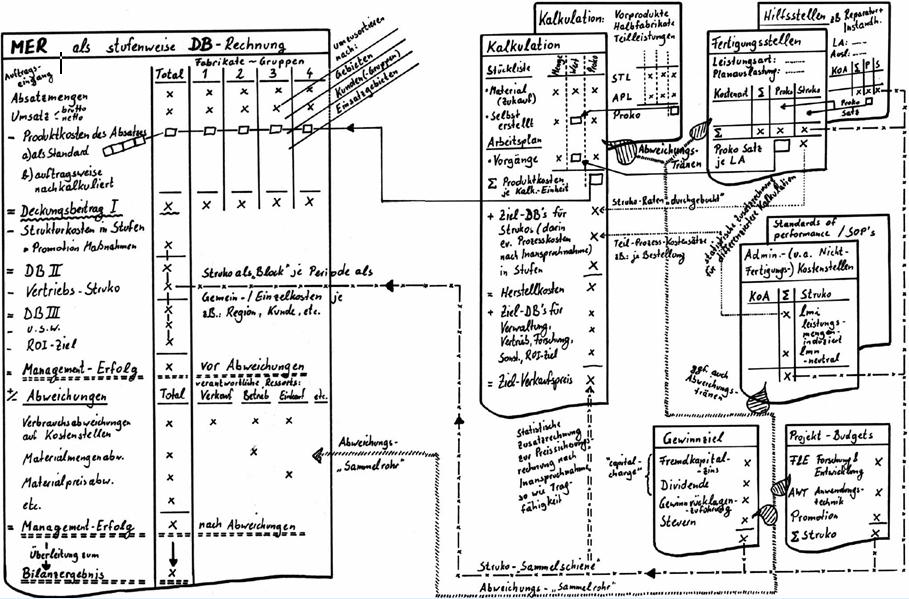 MER als stufenweise DB-Rechnung
Auftrags-
eingang
Fabrikate-Gruppen
Total 1 2 3 4
umzusortieren
nach:
Gebieten
Kunden(-Gruppen)
Einsatzgebieten
Absatzmengen x x x x x
Umsatz - brutto x x x x x
netto
- Produktkosten des Absatzes
a) als Standard
b) auftragsweise
nachkalkuliert
= Deckungsbeitrag I x x x x x
- Strukturkosten in Stufen
* Promotion Maßnahmen x
= DB II x
Struko als „Block" je Periode als
- Vertriebs-Struko x
Gemein-/Einzelkosten je
= DB III x
z.B.: Region, Kunde, etc.
- u.s.w. x
- ROI-Ziel x
= Management-Erfolg x vor Abweichungen
verantwortliche Ressorts:
% Abweichungen Total Verkauf Betrieb Einkauf etc.
Verbrauchsabweichungen x x x x
auf Kostenstellen
Materialmengenabw. x x
Materialpreisabw. x x
etc. x
= Management-Erfolg x nach Abweichungen
Überleitung zum
Bilanzergebnis x
Abweichungs-
„Sammelrohr"
Kalkulation
Stückliste Menge Wert Proko
• Material x x x
(Zukauf)
• Selbst x x
erstellt
Arbeitsplan
• Vorgänge x x
Σ Produktkosten
je Kalk.-Einheit
+ Ziel-DB's für x
Strukos (darin
ev. Prozesskosten x
nach Inanspruchnahme)
in Stufen x
= Herstellkosten x
+ Ziel-DB's für x
Verwaltung, x
Vertrieb, Forschung,
Sonst., ROI-Ziel x
= Ziel-Verkaufspreis x
Statistische
Zusatzrechnung
zur Preissichtungs-
rechnung nach
Inanspruchnahme
so wie Trag-
fähigkeit
Kalkulation: Vorprodukte
Halbfabrikate
Teilleistungen
STL x x x
APL x x x
Proko
Abweichungs-
Tränen
Struko-Raten „durchgebucht"
Teil-Prozess-Kostensätze
z.B.: je Bestellung
statistische Zusatzrechnung
für differenziertere Kalkulation
Fertigungsstellen
Leistungsart:
Planauslastung:
Kostenart Σ Proko Struko
Σ x x x
Proko Satz x
je LA
Hilfsstellen zB Reparatur +
Instandh.
LA:
Ausl.:
KoA Σ P S
x x x
Proko
Satz
Standards of
performance / SOP's
Admin.- (u.a. Nicht-
Fertigungs-) Kostenstellen
KoA Σ Struko
x lmi
leistungs-
mengen-
induziert
x lmn
-neutral
x
ggf. auch
Abweichungs-
tränen
Gewinnziel
"capital-
charge"
Fremdkapital- x
zins
Dividende x
Gewinnrücklagen-
zuführung
Steuern x
x
Projekt-Budgets
F&E Forschung & x
Entwicklung
AWT Anwendungs- x
technik
Promotion x
Σ Struko x
Struko-„Sammelschiene"
Abweichungs-„Sammelrohr"